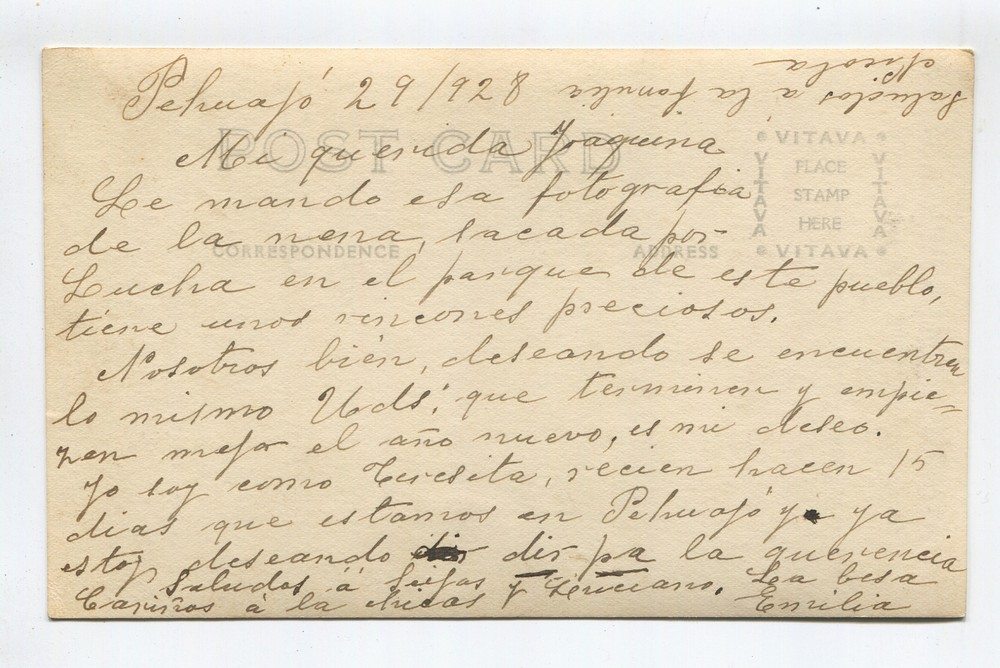 Pehuajó 29/928
Saludos a la familia
Nicola
POST CARD
Mi querida Joaquina
Le mando esa fotografia
de la nena, sacada por
CORRESPONDENCE
ADDRESS
VITAVA
VITAVA
PLACE
STAMP
HERE
VITAVA
VITAVA
Lucha en el parque de este pueblo,
tiene unos rincones preciosos.
Nosotros bién, deseando se encuentren
lo mismo Uds; que terminen y empie=
zen mejor el año nuevo, es mi deseo.
Yo soy como Teresita, récien hacen 15
dias que estamos en Pehuajó y ya
estoy deseando dir pa la querencia
Saludos á Luisa
Cariños á la chicas y Luciano. La besa
Emilia